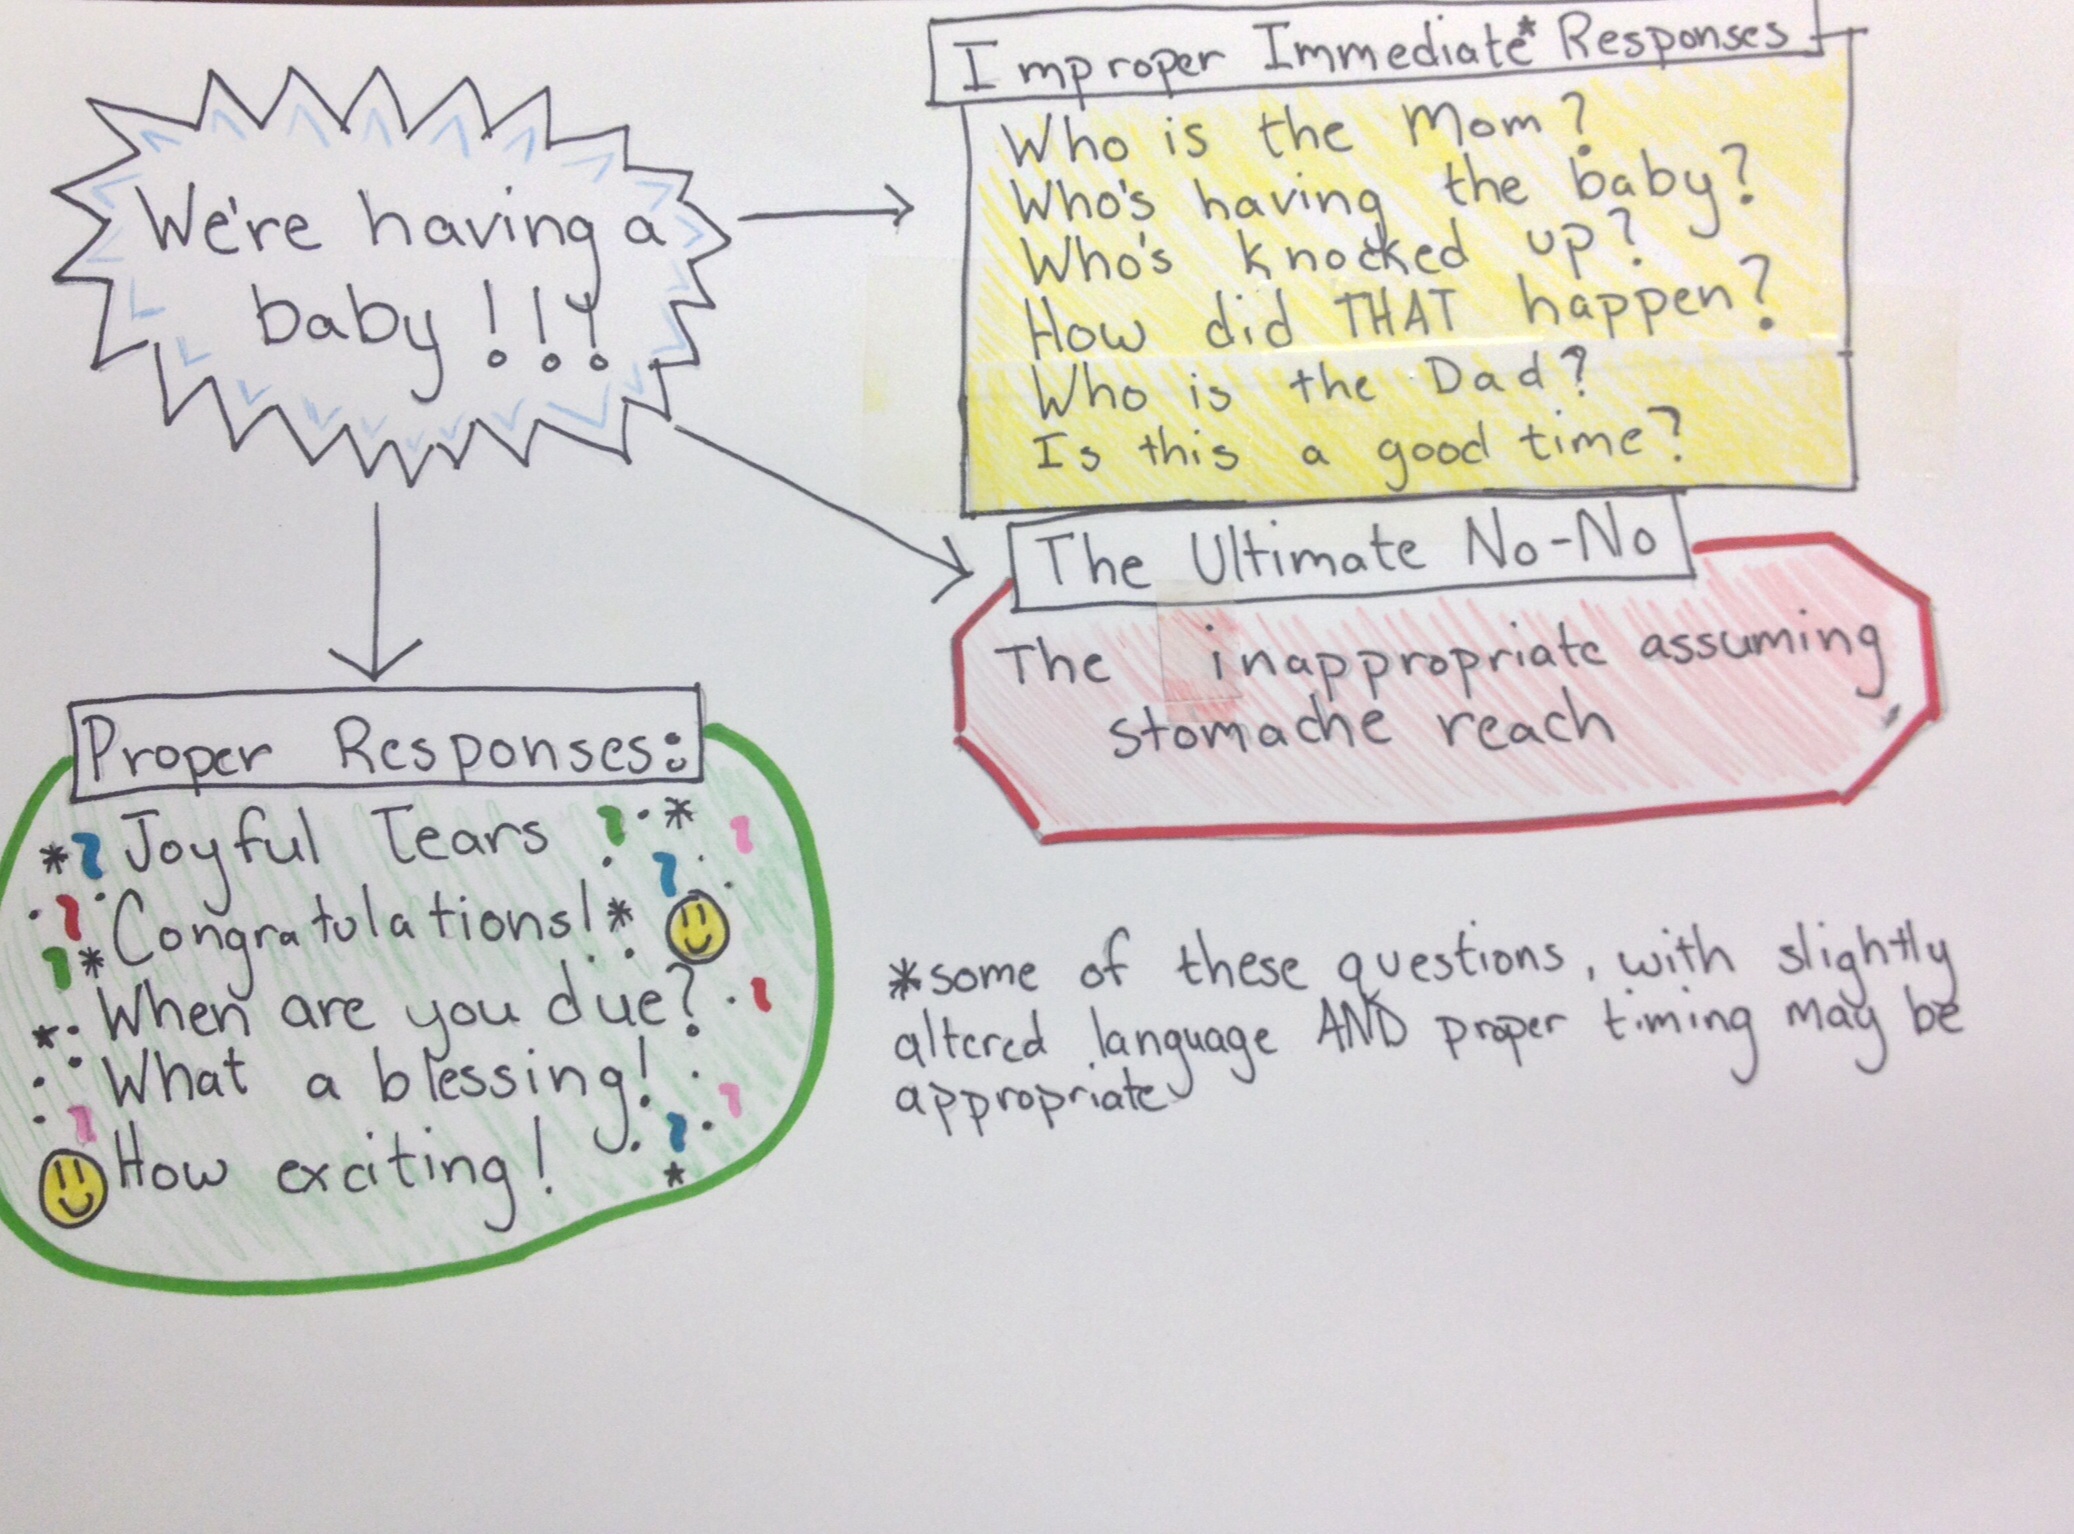 We're having a
baby!!!
Improper Immediate* Responses
Who is the Mom?
Who's having the baby?
Who's knocked up?
How did THAT happen?
Who is the Dad?
Is this a good time?
The Ultimate No-No
The inappropriate assuming
stomache reach
Proper Responses:
Joyful Tears
Congratulations!
When are you due?
What a blessing!
How exciting!
*some of these questions, with slightly
altered language AND proper timing may be
appropriate